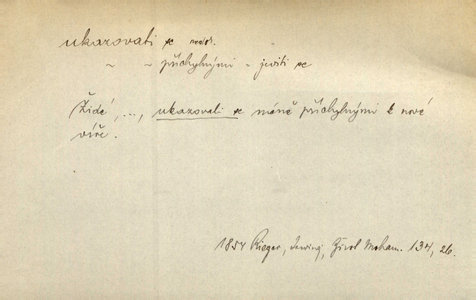 ukazovati se nedok.
~ ~ příchylnými - jeviti se
Židé, ..., ukazovali se méně příchylnými k nové
víře.
1854 Rieger, Irving, Život Moham. 134, 26.